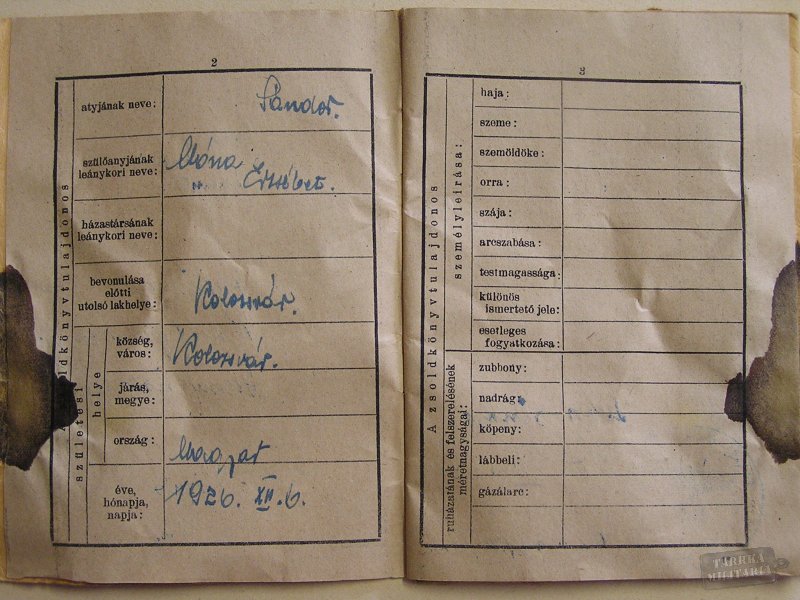 2
A zsoldkönyvtulajdonos
atyjának neve: Sándor.
szülőanyjának
leánykori neve: Móna
" Erzsébet.
házastársának
leánykori neve:
bevonulása
előtti
utolsó lakhelye: Kolozsvár.
születési
helye
község,
város: Kolozsvár.
járás,
megye:
ország: Magyar
éve,
hónapja,
napja: 1926. XII. 6.
3
A zsoldkönyvtulajdonos
személyleírása:
haja:
szeme:
szemöldöke:
orra:
szája:
arcszabása:
testmagassága:
különös
ismertető jele:
esetleges
fogyatkozása:
ruházatának és felszerelésének
méretnagyságai:
zubbony:
nadrág:
köpeny:
lábbeli:
gázálarc:
TARRKA
MILITARIA